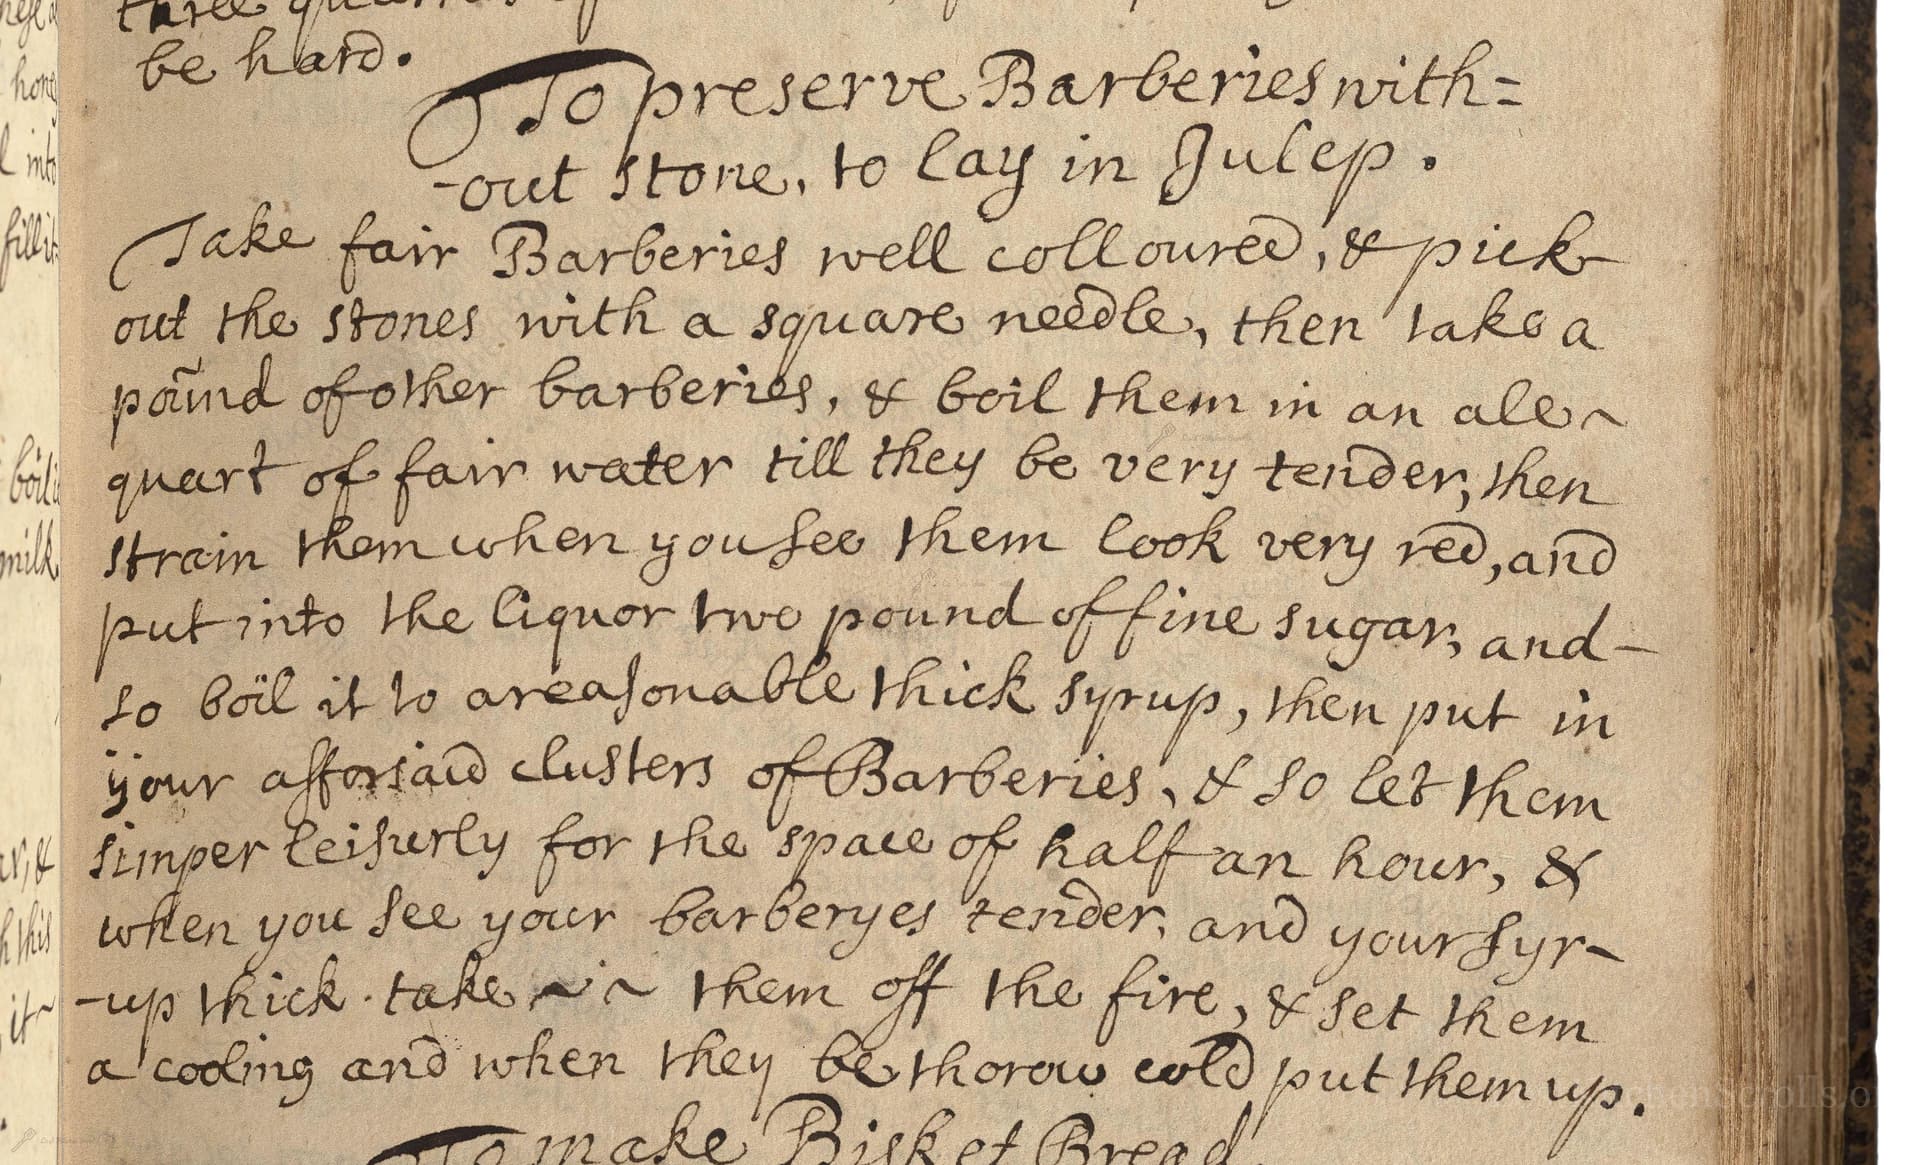 three
be hard.
To preserve Barberies with=
-out stone, to lay in Julep.
Take fair Barberies well colloured, & pick
out the stones with a square needle, then take a
pound of other barberies, & boil them in an ale~
quart of fair water till they be very tender, then
strain them when you see them look very red, and
put into the liquor two pound of fine sugar, and-
so boil it to a reasonable thick syrup, then put in
your afforsaid clusters of Barberies, & so let them
simper leisurly for the space of half an hour, &
when you see your barberyes tender, and your syr-
-up thick. take ~ ~ them off the fire, & set them
a cooling and when they be thorow cold put them up.
To make Bisket Bread.
hone
into
fill it
boil
milk
&
this
it~